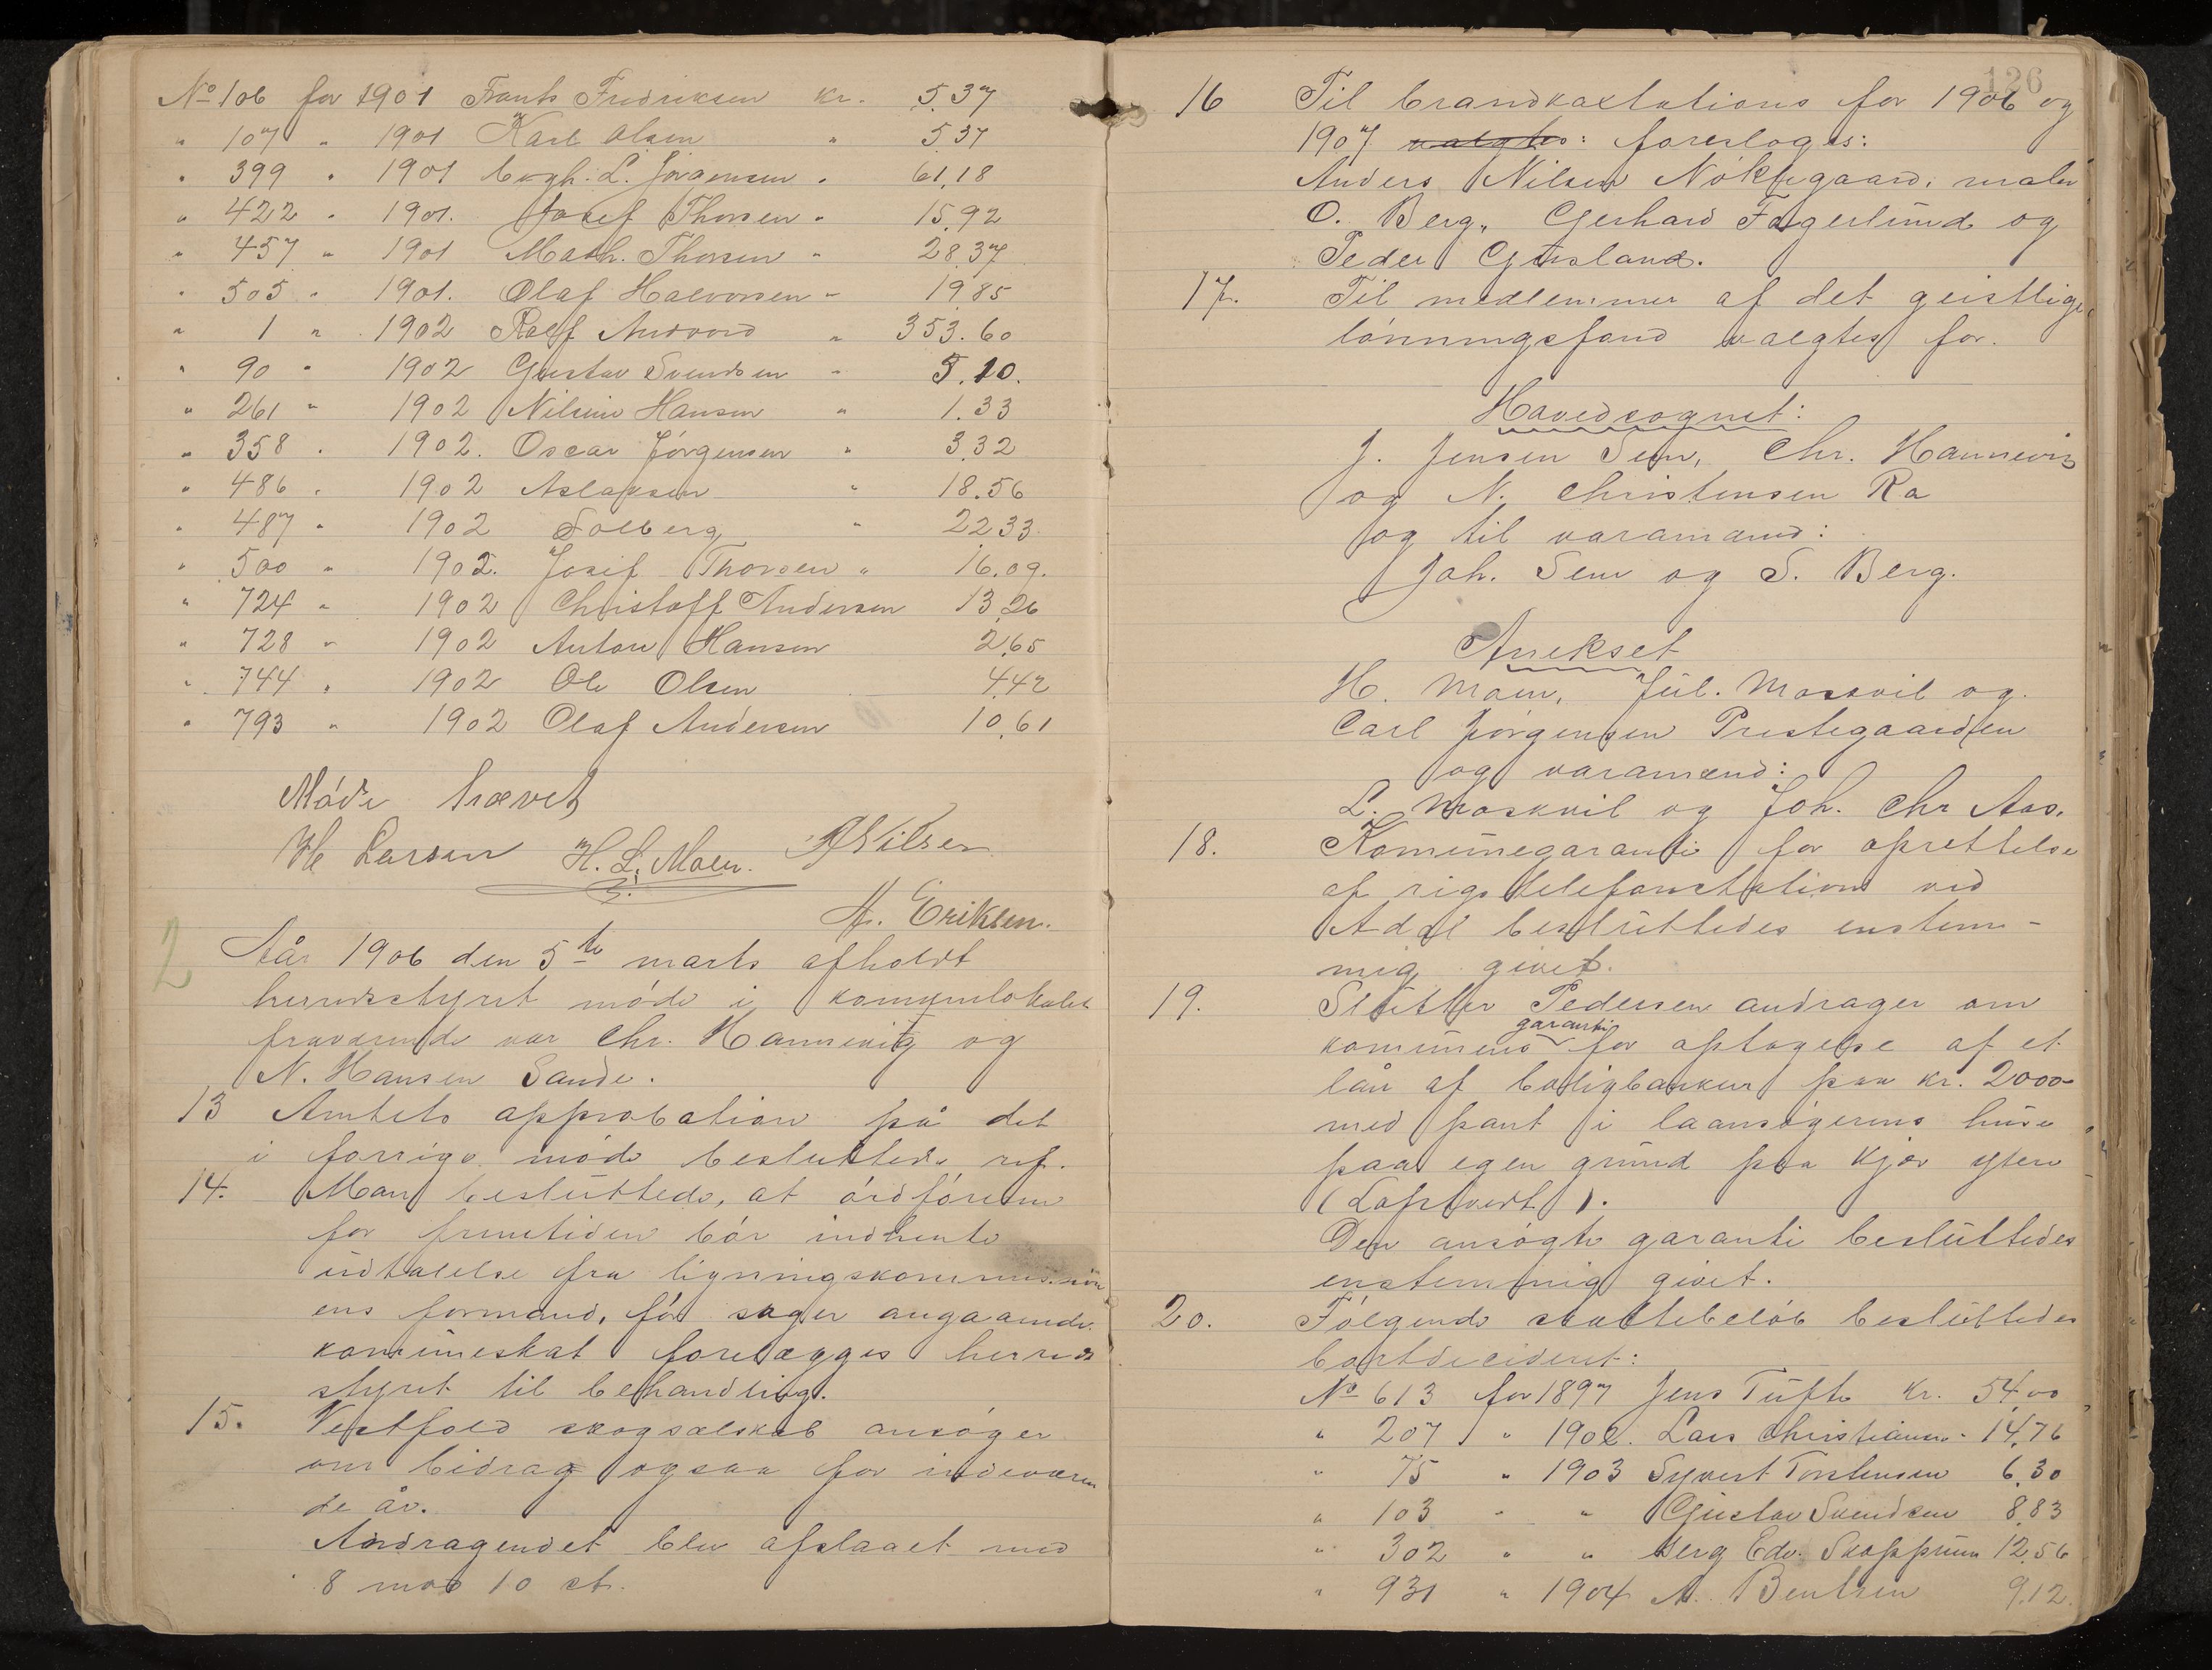 No 106 for 1901 Frants Fredriksen kr. 5.37
" 107 " 1901 Karl Olsen " 5.37
" 399 " 1901 L. Jørgensen " 61,18
" 422 " 1901. Josef Thorsen " 15,92
" 457 " 1901 Math. Thorsen " 28.37
" 505 " 1901. Olaf Halvorsen " 19,85
" 1 " 1902 Rolf Andvord " 353.60
" 90 " 1902 Gustav Svendsen " 5.20.
" 261 " 1902 Nilsine Hansen " 1.33
" 358 " 1902. Oscar Jørgensen " 3.32
" 486 " 1902 Aslaksen " 18.56
" 487 " 1902 Solberg " 22.33
" 500 " 1902. Josef Thorsen " 16.09.
" 724 " 1902 Christoff Andersen 13,26
" 728 " 1902 Anton Hansen 2,65
" 744 " 1902 Ole Olsen 4,42
" 793 " 1902 Olaf Andersen 10,61
Møde hævet
Larsen H. L. Moen. A Nilsen
A. Eriksen.
2
Aår 1906 den 5te marts afholdt
herredsstyret møde i komunelokalet
fraværende var Chr. Hannevig og
N. Hansen Sande.
13 Amtets approbation på det
i forrige møde besluttede ref.
14. Man besluttede, at ordføreren
for fremtiden bør indhente
udtalelse fra ligningskommission
ens formand, før sager angaaende
komuneskat forelægges herreds
styret til behandling.
15. Vestfold skogselskab ansøger
om bidrag ogsaa for indeværen
de år.
Andragendet blev afslaaet med
8 mod 10 st.
126
16 Til brandtakstations for 1906 og
1907 valgtes: foresloges:
Anders Nilsen Nøklegaard, maler
O. Berg, Gerhard Fagerlund og
Peder Gusland.
17. Til medlemmer af det geistlige
lønningsfond valgtes for.
Hovedsognet:
J. Jensen Sem, Chr. Hannevig
og N. Christensen Ra
og til varamænd:
Joh. Sem og S. Berg.
Anekset
H. Moen, Jul. Moskvil og
Carl Jørgensen Prestegaarden
og varamænd:
L. Moskvil og Joh. Chr Aas.
18. Komunegaranti for oprettelse
af rigstelefonstation ved
Adal besluttedes enstem-
mig givet.
19. Slutter Pedersen andrager om
garanti
komunens for optagelse af et
lån af boligbanken paa kr. 2000-
med pant i laansøgerens huse
paa egen grund paa Kjær ytre
(Loftvedt).
Den ansøgte garanti besluttedes
enstemmig givet.
20. Følgende skattebeløb besluttedes
bortdecideret:
No 613 for 1897 Jens Tufte Kr. 54,00
" 207 " 1902. Lars Christiansen " 14,76
" 75 " 1903 Syvert Torstensen 6.30
" 103 " " Gustav Svendsen 8.83
" 302 " " Berg Edv. Skoppum 12.56
" 931 " 1904 A. Bentsen 9.12